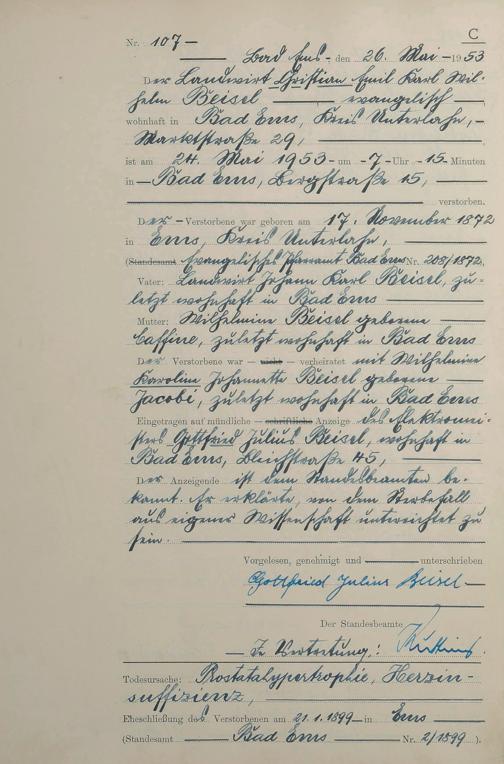 C
Nr. 107 —
Bad Ems, den 26. Mai 1953
Der Landwirt Christian Emil Karl Wil-
helm Beisel — evangelisch —,
wohnhaft in Bad Ems, Kreis Unterlahn, -
Marktstraße 29,
ist am 24. Mai 1953 - um - 7 - Uhr - 15 - Minuten
in — Bad Ems, Bergstraße 15,
verstorben.
Der - Verstorbene war geboren am 17. November 1872
in Ems, Kreis Unterlahn,
(Standesamt Evangelisches Pfarramt Bad Ems Nr. 208/1872.
Vater: Landwirt Johann Karl Beisel, zu-
letzt wohnhaft in Bad Ems
Mutter: Wilhelmine Beisel geborene
zuletzt wohnhaft in Bad Ems
Der Verstorbene war — nicht — verheiratet mit Wilhelmine
Karoline Johannette Beisel geborene
Jacobi, zuletzt wohnhaft in Bad Ems
Eingetragen auf mündliche — schriftliche — Anzeige des Elektromei-
sters Gottfried Julius Beisel, wohnhaft in
Bad Ems, Bleichstraße 45,
Der Anzeigende ist dem Standesbeamten be-
kannt. Er erklärte, von dem Sterbefall
aus eigener Wissenschaft unterrichtet zu
sein.
Vorgelesen, genehmigt und — unterschrieben
Gottfried Julius Beisel
Der Standesbeamte
In Vertretung:
Todesursache: Prostatahypertrophie, Herzin-
suffizienz,
Eheschließung des Verstorbenen am 21.1.1899 in Ems
(Standesamt — Bad Ems — Nr. 2/1899 ).